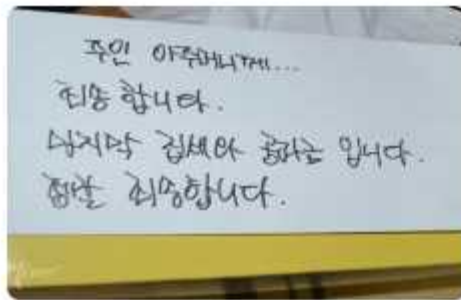 주인 아주머니께...
죄송 합니다.
마지막 집세와 공과금 입니다.
정말 죄송합니다.